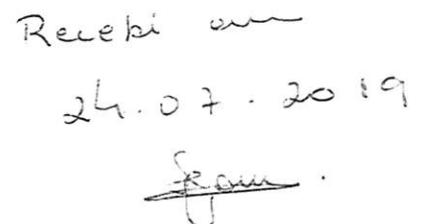 Recebi em
24.07.2019